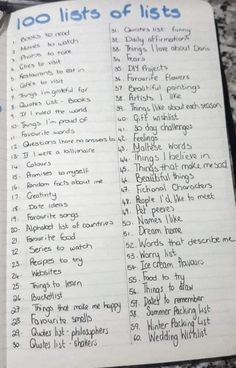 100 lists of lists
1. Books to read
2. Movies to watch
3. Photos to take
4. Cities to visit
5. Restaurants to eat in
6. Cafes to visit
7. Things I'm grateful for
8. Quotes List - Books
9. If I ruled the world
10. Things I'm proud of
11. Favourite words
12. Questions I have no answers to
13. If I were a billionaire
14. Colours
15. Promises to myself
16. Random facts about me
17. Creativity
18. Date ideas
19. Favourite songs
20. Alphabet list of countries
21. Favourite food
22. Series to watch
23. Recipes to try
24. Websites
25. Things to learn
26. Bucketlist
27. Things that make me happy
28. Favourite smells
29. Quotes list - philosophers
30. Quotes list -
31. Quotes list funny
32. Daily affirmations
33. Things I love about
34. Fears
35. DIY Projects
36. Favourite flowers
37. Beautiful paintings
38. Artists I like
39. Things I like about each season
40. Gift wishlist
41. 30 day challenges
42. Feelings
43. Maltese words
44. Things I believe in
45. Things that make me sad
46. Beautiful things
47. Fictional Characters
48. People I'd like to meet
49. Pet peeves
50. Names I like
51. Dream home
52. Words that describe me
53. Worry list
54. Ice cream flavours
55. Food to try
56. Things to draw
57. Dates to remember
58. Summer Packing List
59. Winter Packing List
60. Wedding Wishlist